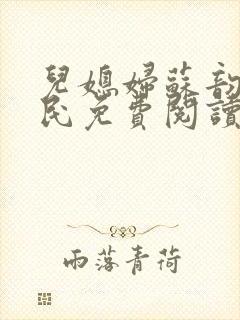 兒媳婦蘇韵
民免費閱讀
雨落青荷